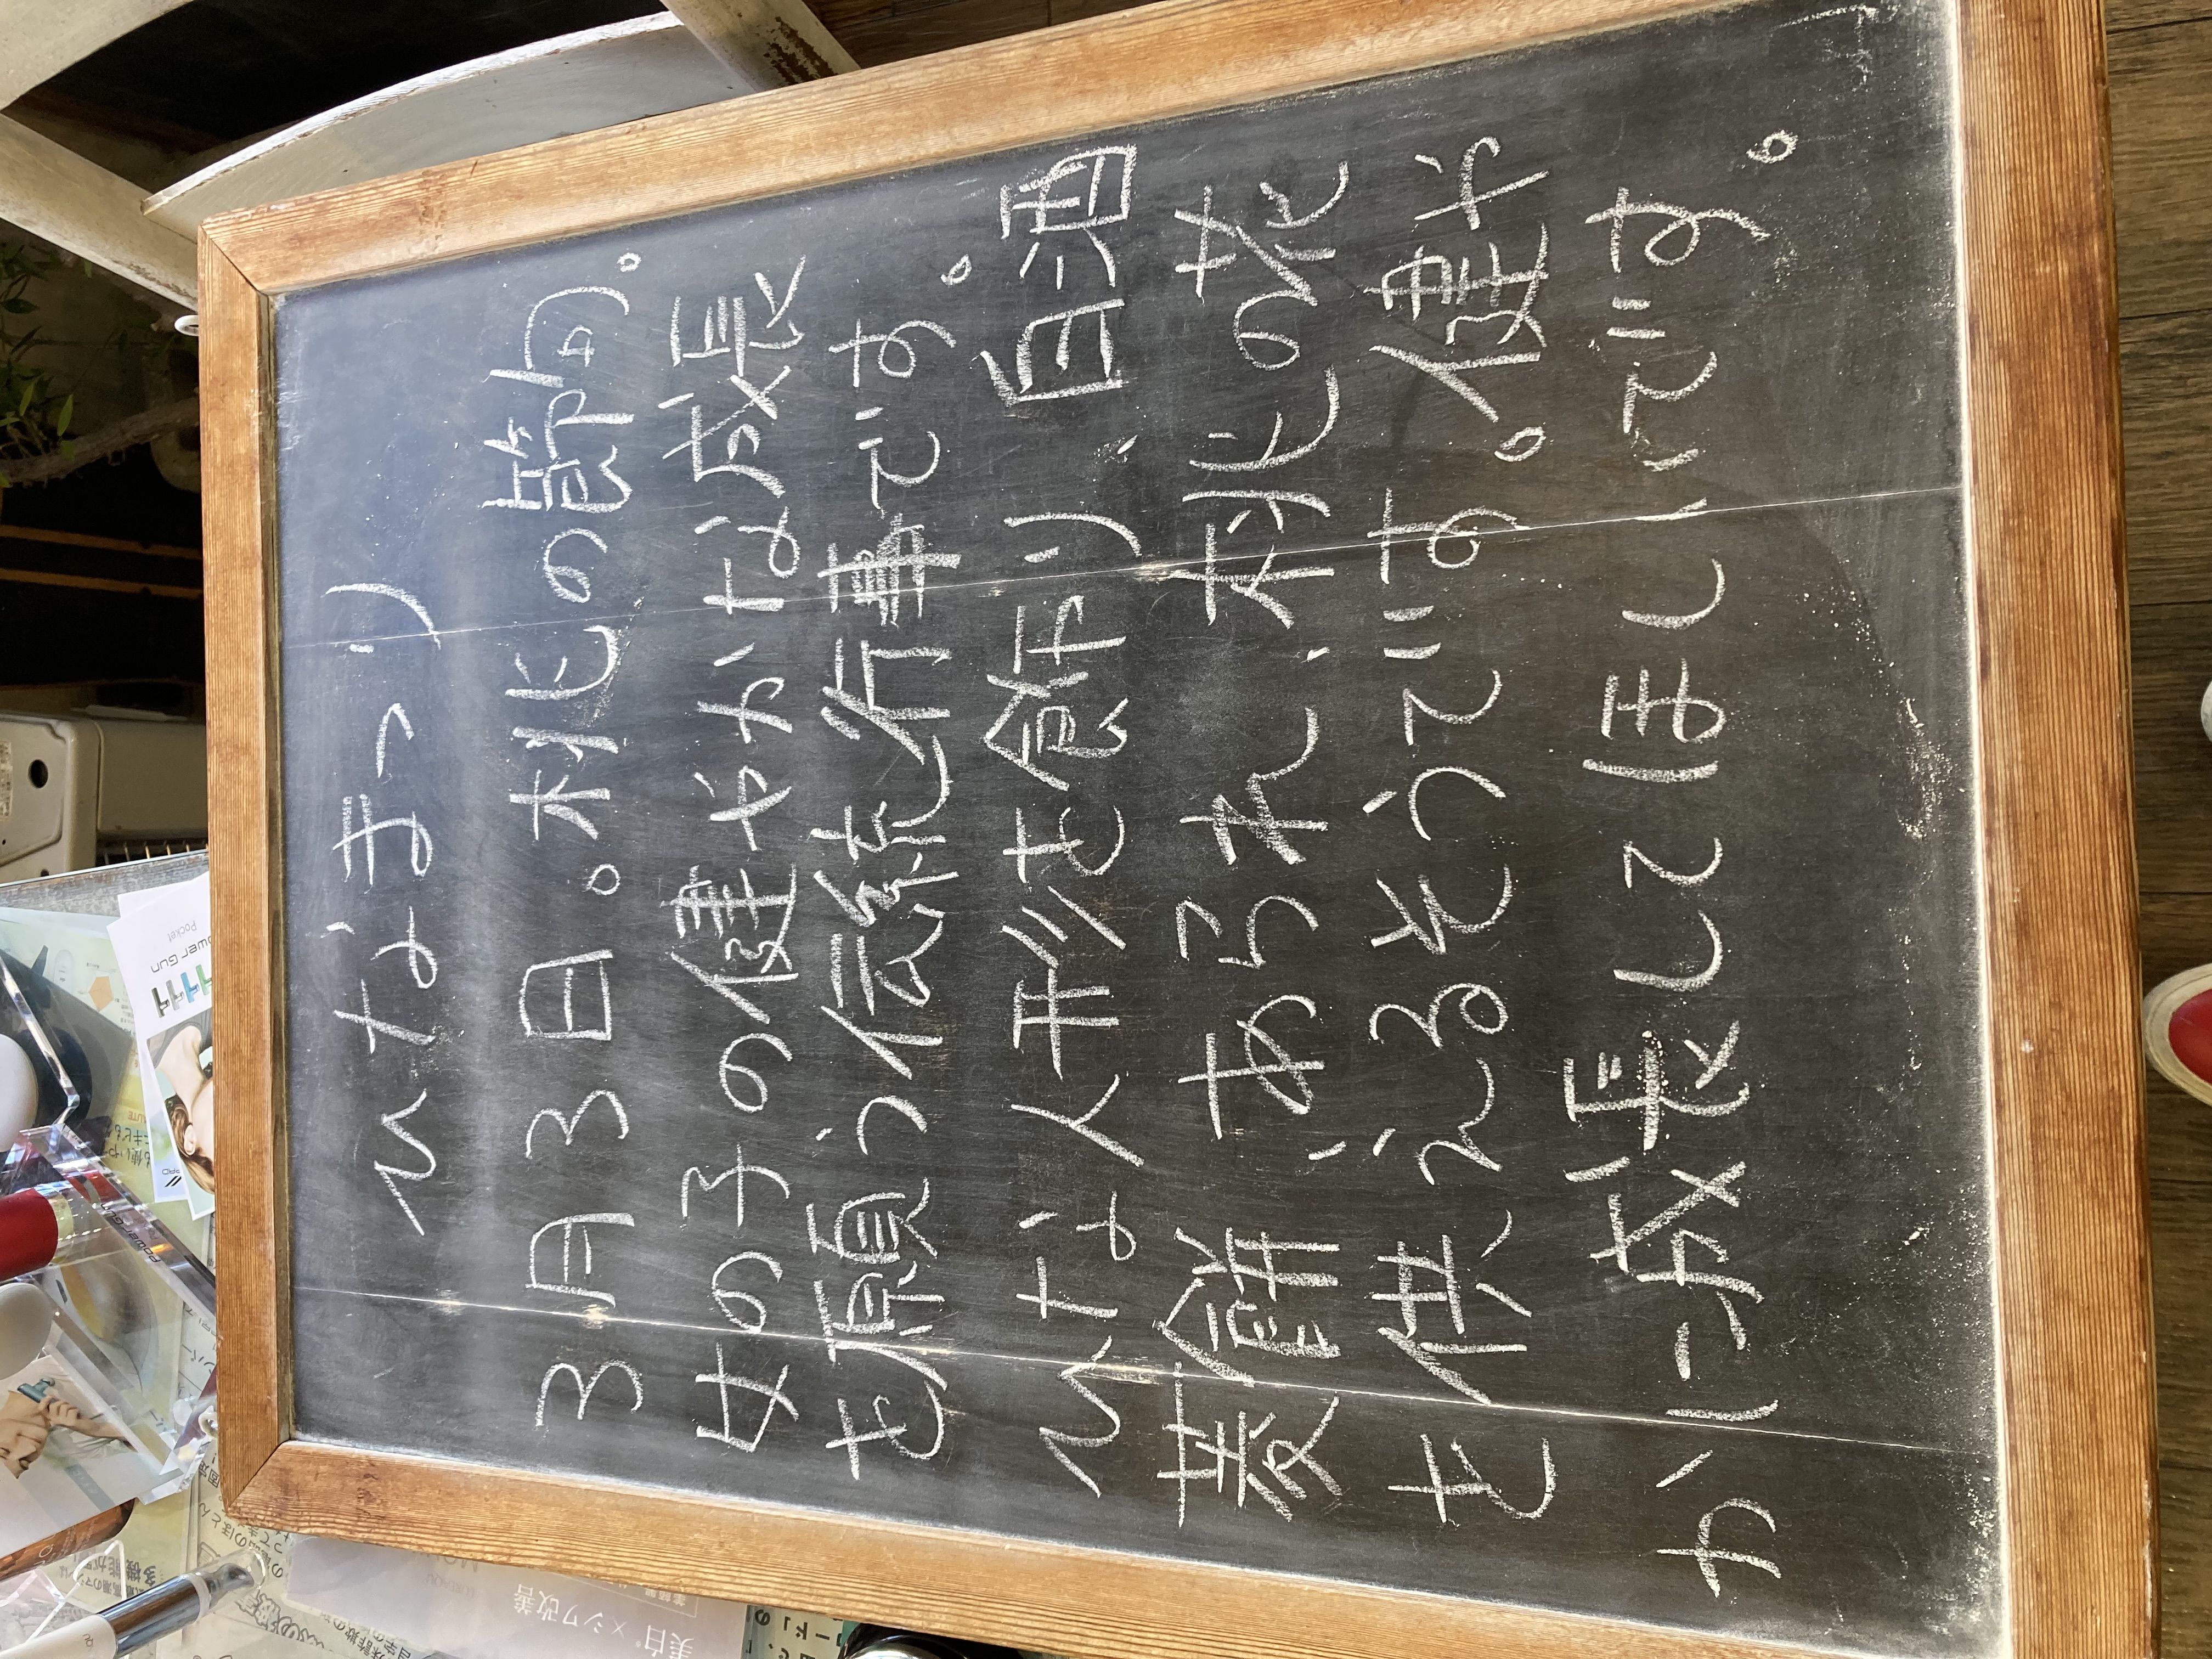 ひなまつり
3月3日。桃の節句。
女の子の健やかな成長
を願う伝統行事です。
ひな人形を飾り、白酒
菱餅、あられ、桃の花
を供えるそうです。健や
かに成長してほしいです。
Pocket
美白*×シワ改善